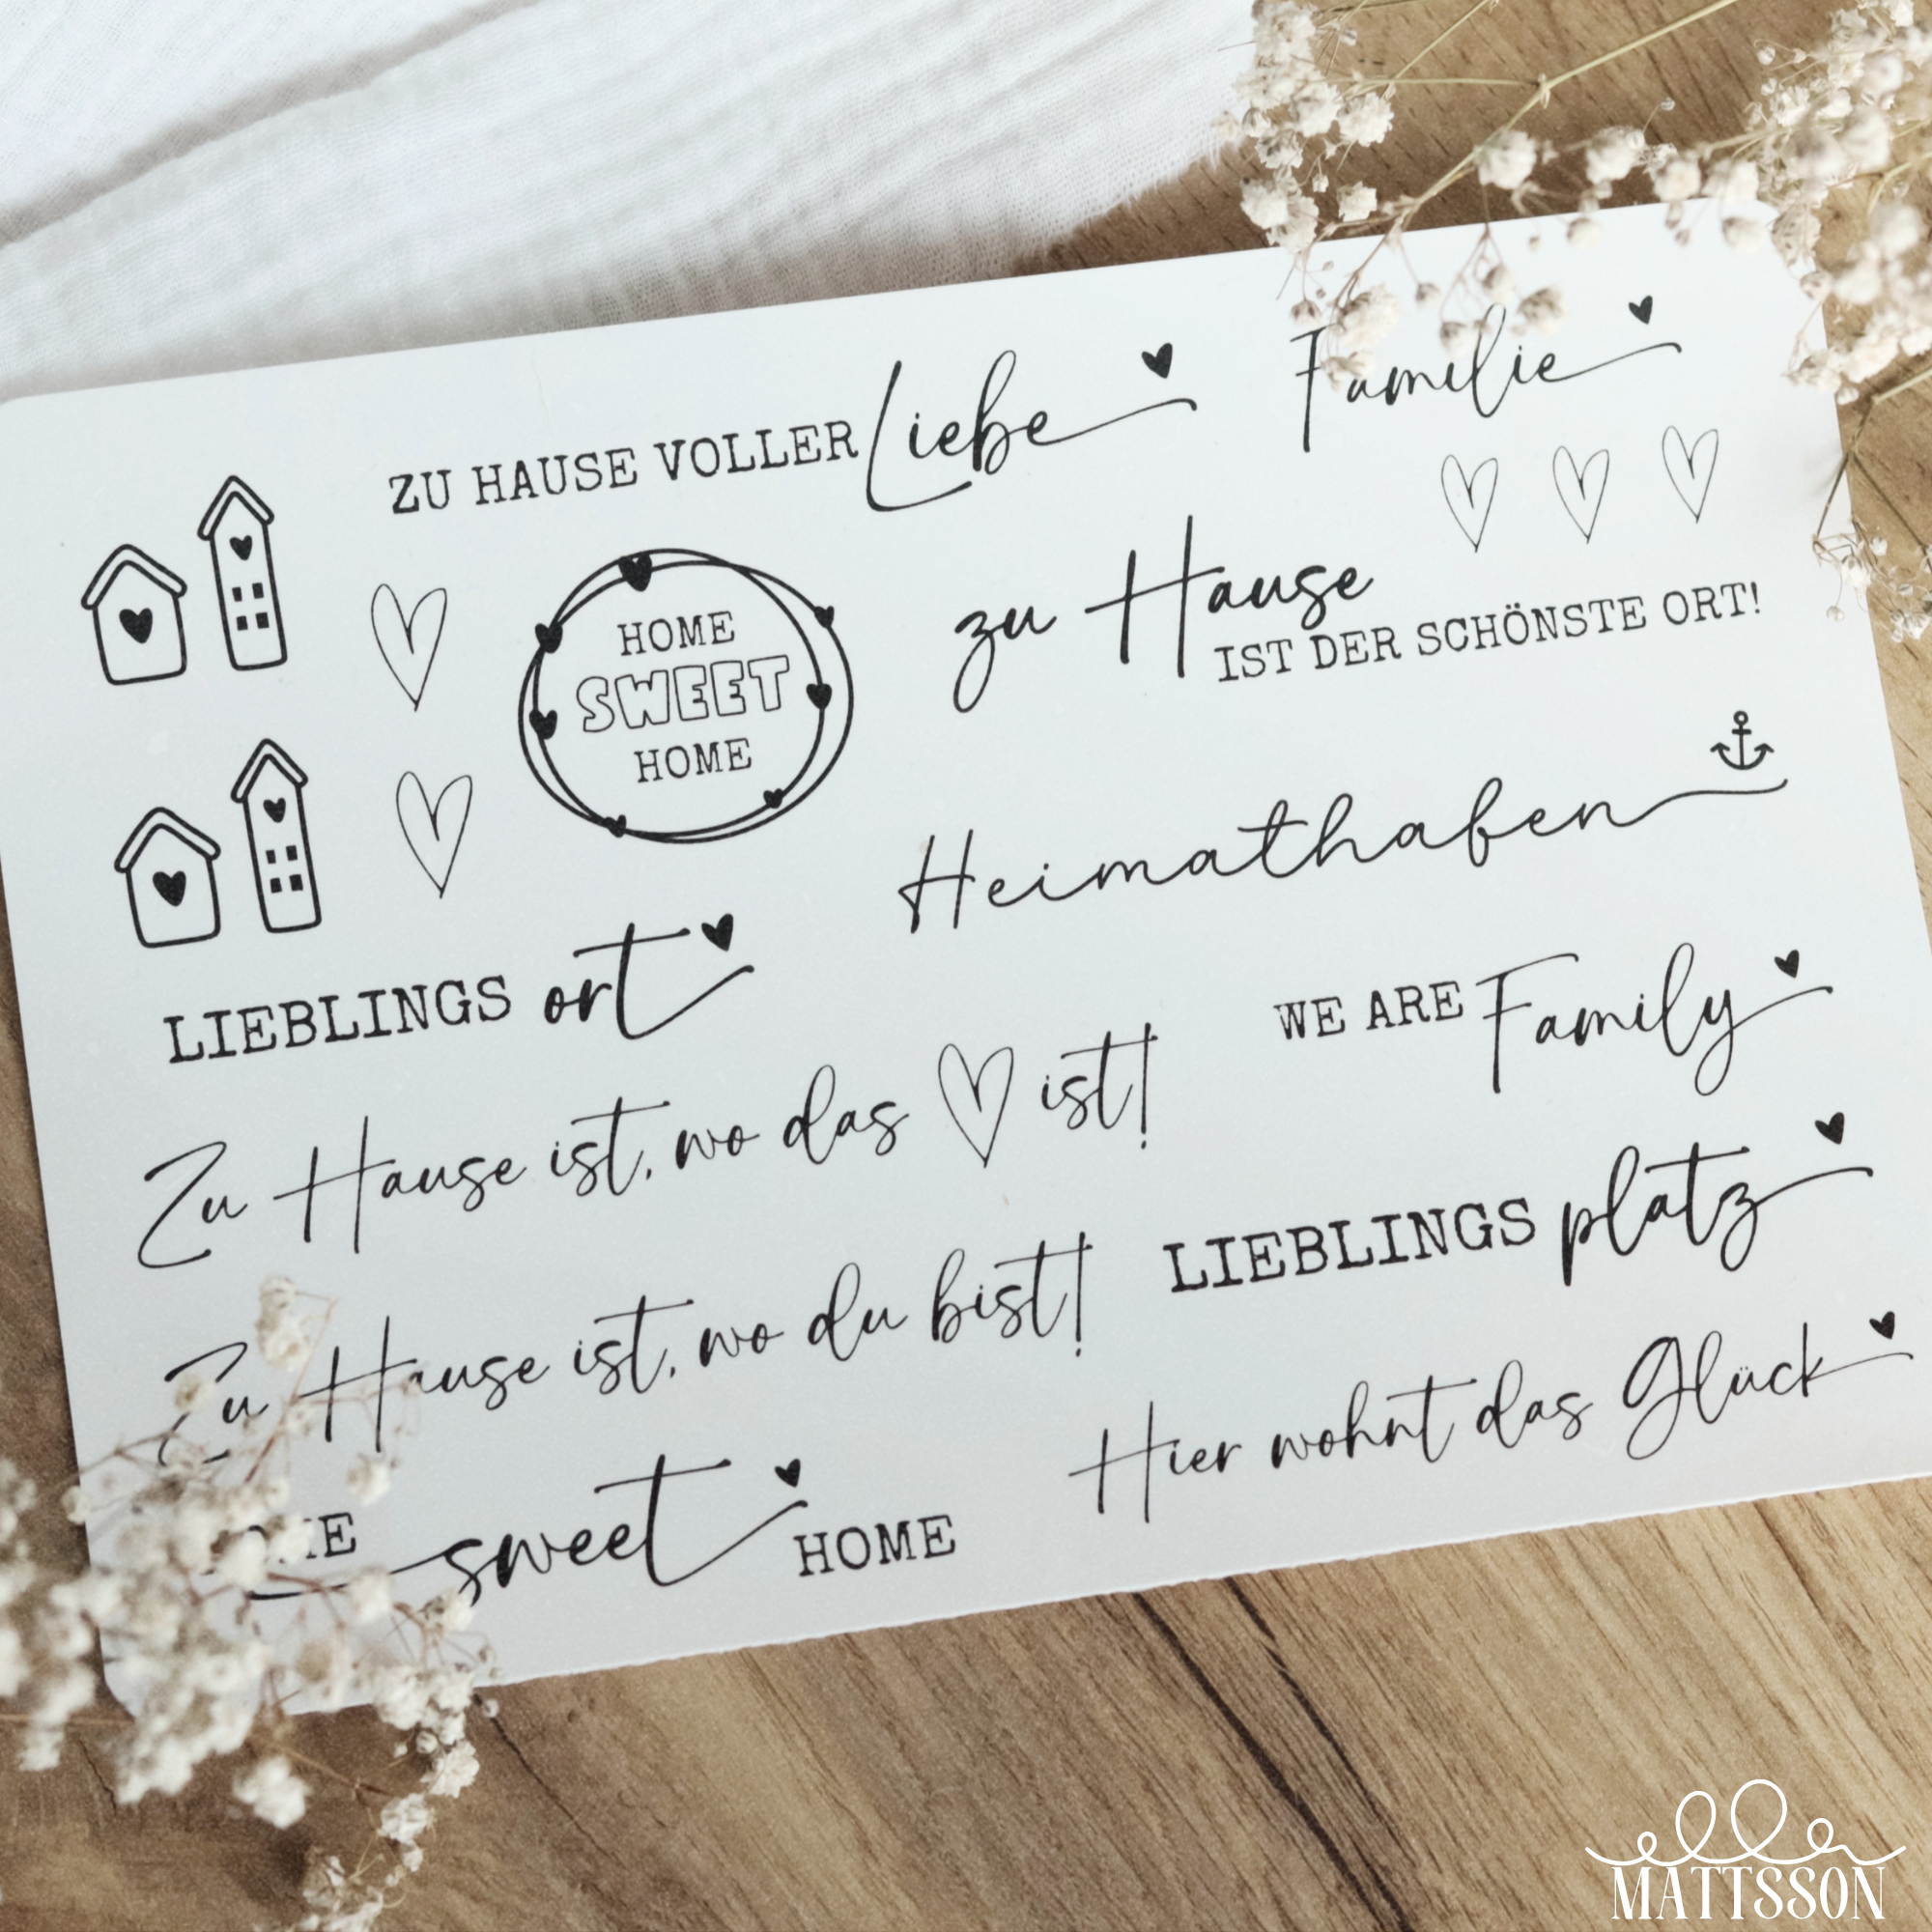 ZU HAUSE VOLLER Liebe
Familie
HOME
SWEET
HOME
zu Hause
IST DER SCHÖNSTE ORT!
Heimathafen
LIEBLINGS ort
WE ARE Family
Zu Hause ist, wo das ist!
LIEBLINGS platz
Zu Hause ist, wo du bist!
Hier wohnt das Glück
sweet HOME
ella
MATTSSON